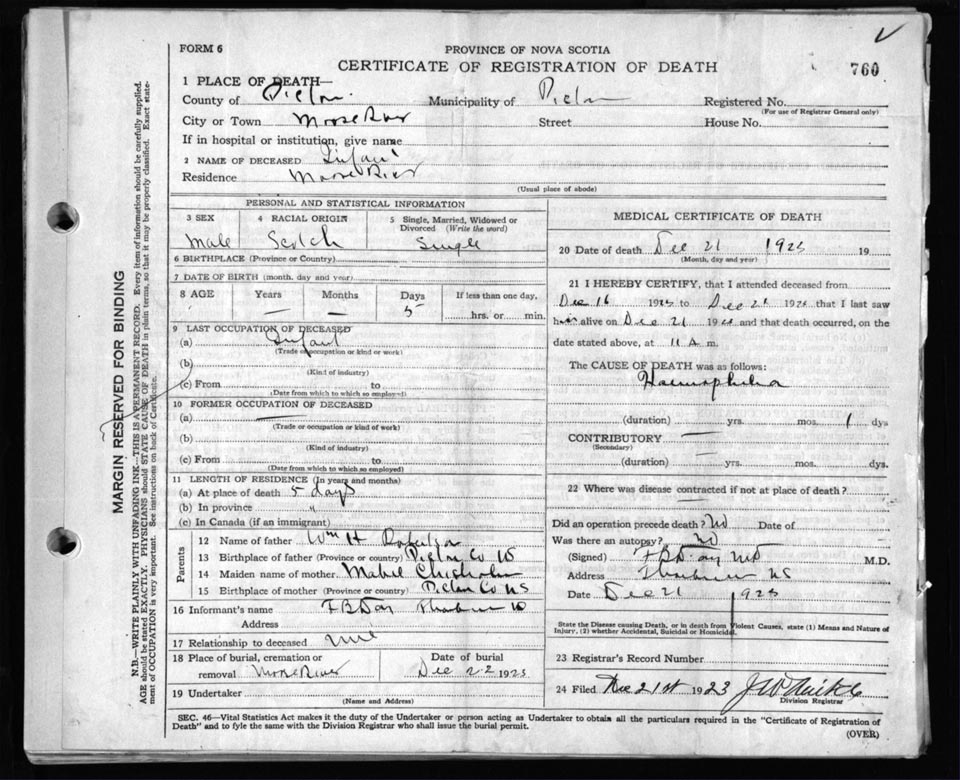 FORM 6
PROVINCE OF NOVA SCOTIA
CERTIFICATE OF REGISTRATION OF DEATH
760
1 PLACE OF DEATH—
County of Pictou Municipality of Pictou Registered No.
(For use of Registrar General only)
City or Town Moose River Street House No.
If in hospital or institution, give name
2 NAME OF DECEASED Infant
Residence Moose River
(Usual place of abode)
PERSONAL AND STATISTICAL INFORMATION
3 SEX 4 RACIAL ORIGIN 5 Single, Married, Widowed or Divorced (Write the word)
Male Scotch Single
6 BIRTHPLACE (Province or Country)
7 DATE OF BIRTH (month, day and year)
8 AGE Years Months Days If less than one day,
— — 5 hrs. or min.
9 LAST OCCUPATION OF DECEASED
(a) Infant
(Trade or occupation or kind of work)
(b)
(Kind of industry)
(c) From to
(Date from which to which so employed)
10 FORMER OCCUPATION OF DECEASED
(a) —
(Trade or occupation or kind of work)
(b)
(Kind of industry)
(c) From to
(Date from which to which so employed)
11 LENGTH OF RESIDENCE (In years and months)
(a) At place of death 5 days
(b) In province "
(c) In Canada (if an immigrant)
Parents
12 Name of father Wm H Robertson
13 Birthplace of father (Province or country) Pictou Co NS
14 Maiden name of mother Mabel Chisholm
15 Birthplace of mother (Province or country) Pictou Co NS
16 Informant's name F B Day Thorburn NS
Address
17 Relationship to deceased
18 Place of burial, cremation or removal Moose River
Date of burial Dec 22 1923
19 Undertaker
(Name and Address)
MEDICAL CERTIFICATE OF DEATH
20 Date of death Dec 21 1923 19
(Month, day and year)
21 I HEREBY CERTIFY, that I attended deceased from
Dec 16 1923 to Dec 21 192 that I last saw
him alive on Dec 21 192 and that death occurred, on the
date stated above, at 11 A m.
The CAUSE OF DEATH was as follows:
Haemophilia
(duration) yrs. mos. 1 dys
CONTRIBUTORY —
(Secondary)
(duration) yrs. mos. dys.
22 Where was disease contracted if not at place of death?
Did an operation precede death? No Date of
Was there an autopsy? No
(Signed) F B Day MD M.D.
Address Thorburn NS
Date Dec 21 1923
State the Disease causing Death, or in death from Violent Causes, state (1) Means and Nature of
Injury, (2) whether Accidental, Suicidal or Homicidal.
23 Registrar's Record Number
24 Filed Dec 21st 1923
Division Registrar
SEC. 46—Vital Statistics Act makes it the duty of the Undertaker or person acting as Undertaker to obtain all the particulars required in the "Certificate of Registration of
Death" and to fyle the same with the Division Registrar who shall issue the burial permit.
(OVER)
MARGIN RESERVED FOR BINDING
N.B.—WRITE PLAINLY WITH UNFADING INK—THIS IS A PERMANENT RECORD. Every item of information should be carefully supplied.
AGE should be stated EXACTLY. PHYSICIANS should STATE CAUSE OF DEATH in plain terms, so that it may be properly classified. Exact statement
of OCCUPATION is very important. See instructions on back of Certificate.